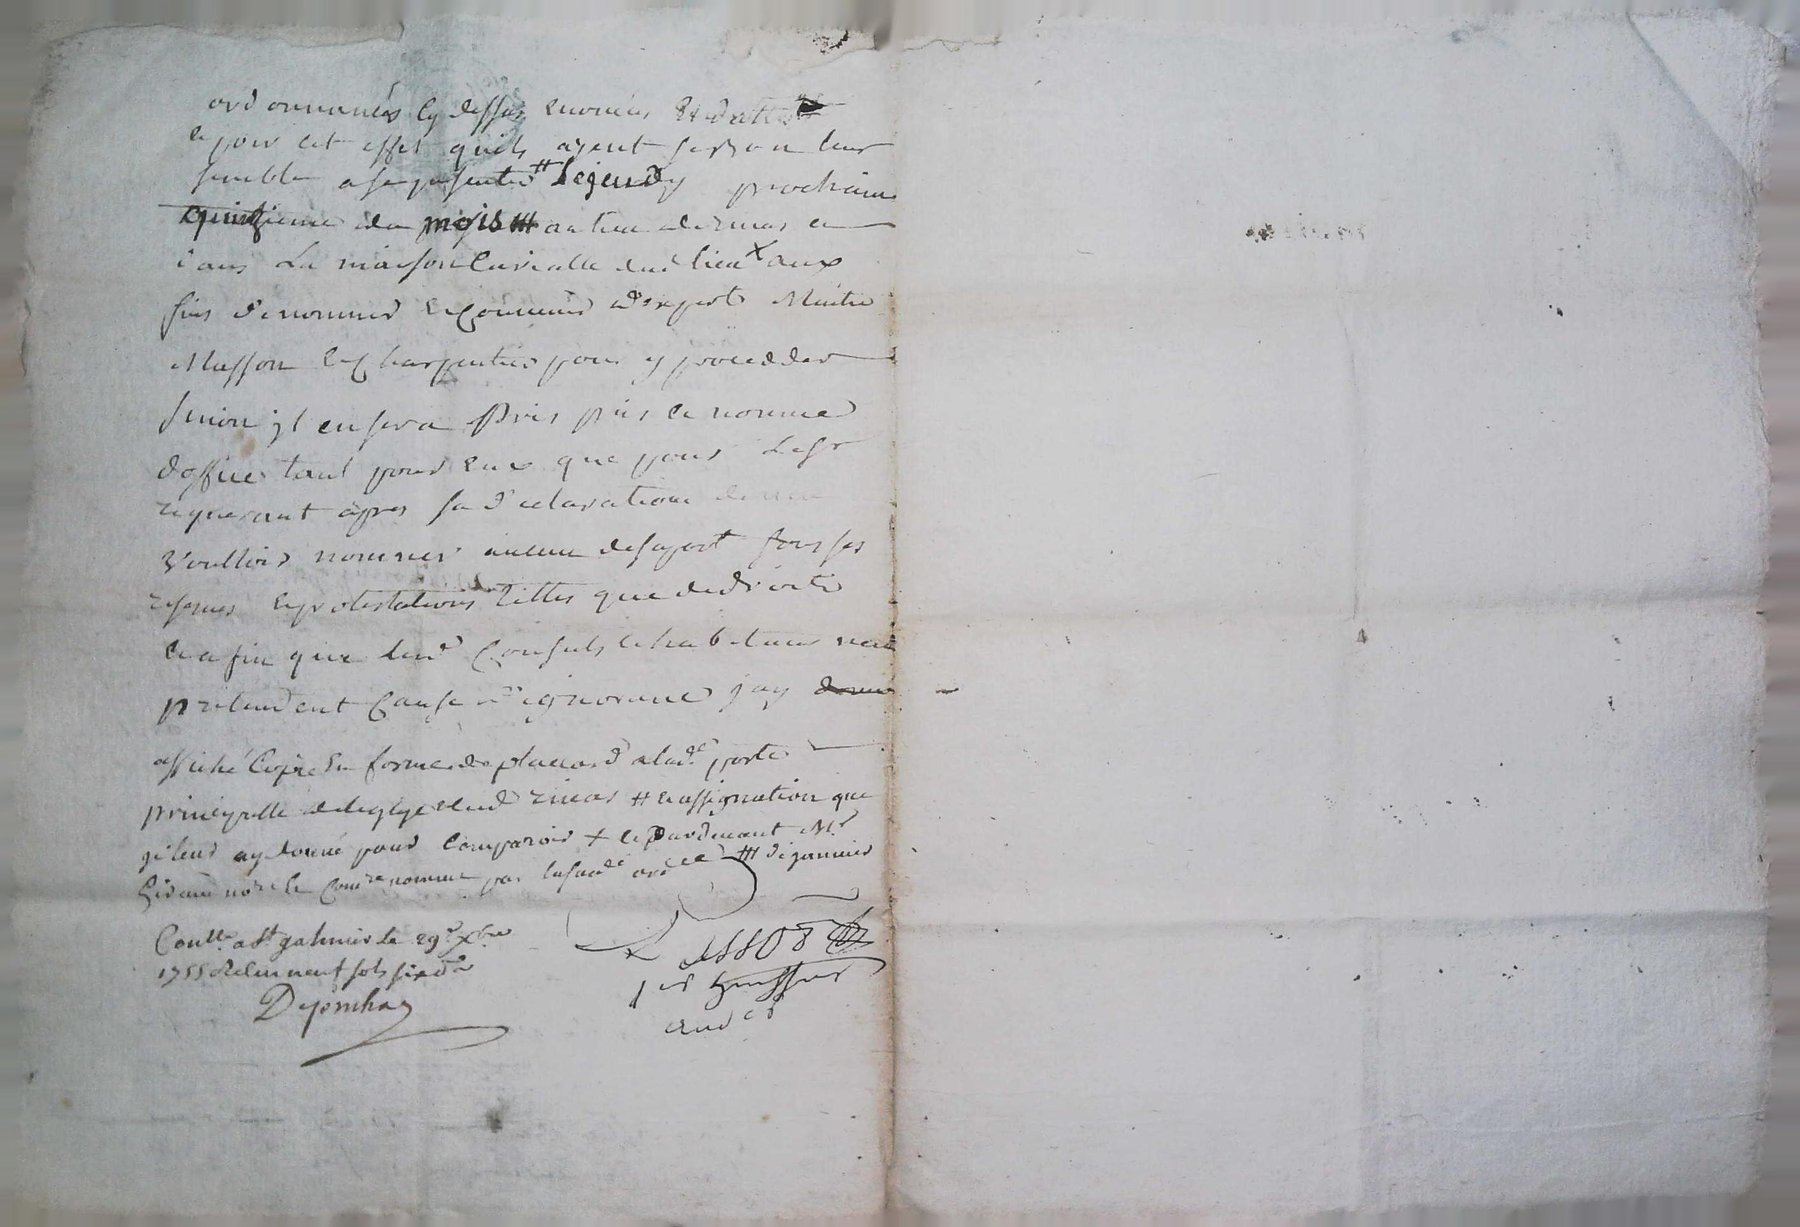 ordonnances cy dessus enoncées et dattés
e pour cet effet quils ayent si bon leur
semble a se presenter # le jeudy prochain
quinzieme du mois ### au lieu de rivas en
dans la maison curialle dud lieu x aux
fins de nommer et convenir d'expert Maitre
Masson et Charpentier pour y proceder
sinon jl en sera pris pris et nommé
doffice tant pour eux que pour led sr
requerant apres sa declaration de ne
voulloir nommer aucun de sa part sous ses
reserves et protestations telles que de droit
et a fin que lesd Consuls et habitans nen
pretendent cause d'ignorance jay donné
affiché copie en forme de placard a lad. porte
principalle de leglize dud rivas # et assignation que
je leur ay donné pour comparoir + et pardevant Mr
nore et Comre nommé par lusd. ordce ### de janvier
Coullé a St galmier le 29e xbre
1755 Reçu neuf sols six drs
huissier